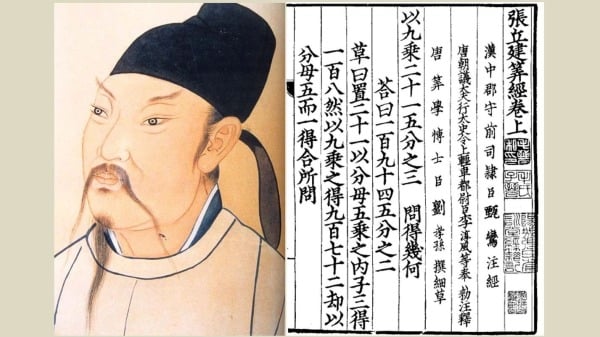 張丘建筭經卷上
漢中郡守前司隸臣甄鸞注經
唐朝議大夫行太史令上輕車都尉臣李淳風等奉 勑注釋
唐筭學博士臣劉孝孫撰細草
以九乘二十一五分之三 問得幾何
荅曰一百九十四五分之二
草曰置二十一以分母五乘之內子三得
一百八然以九乘之得九百七十二却以
分母五而一得合所問